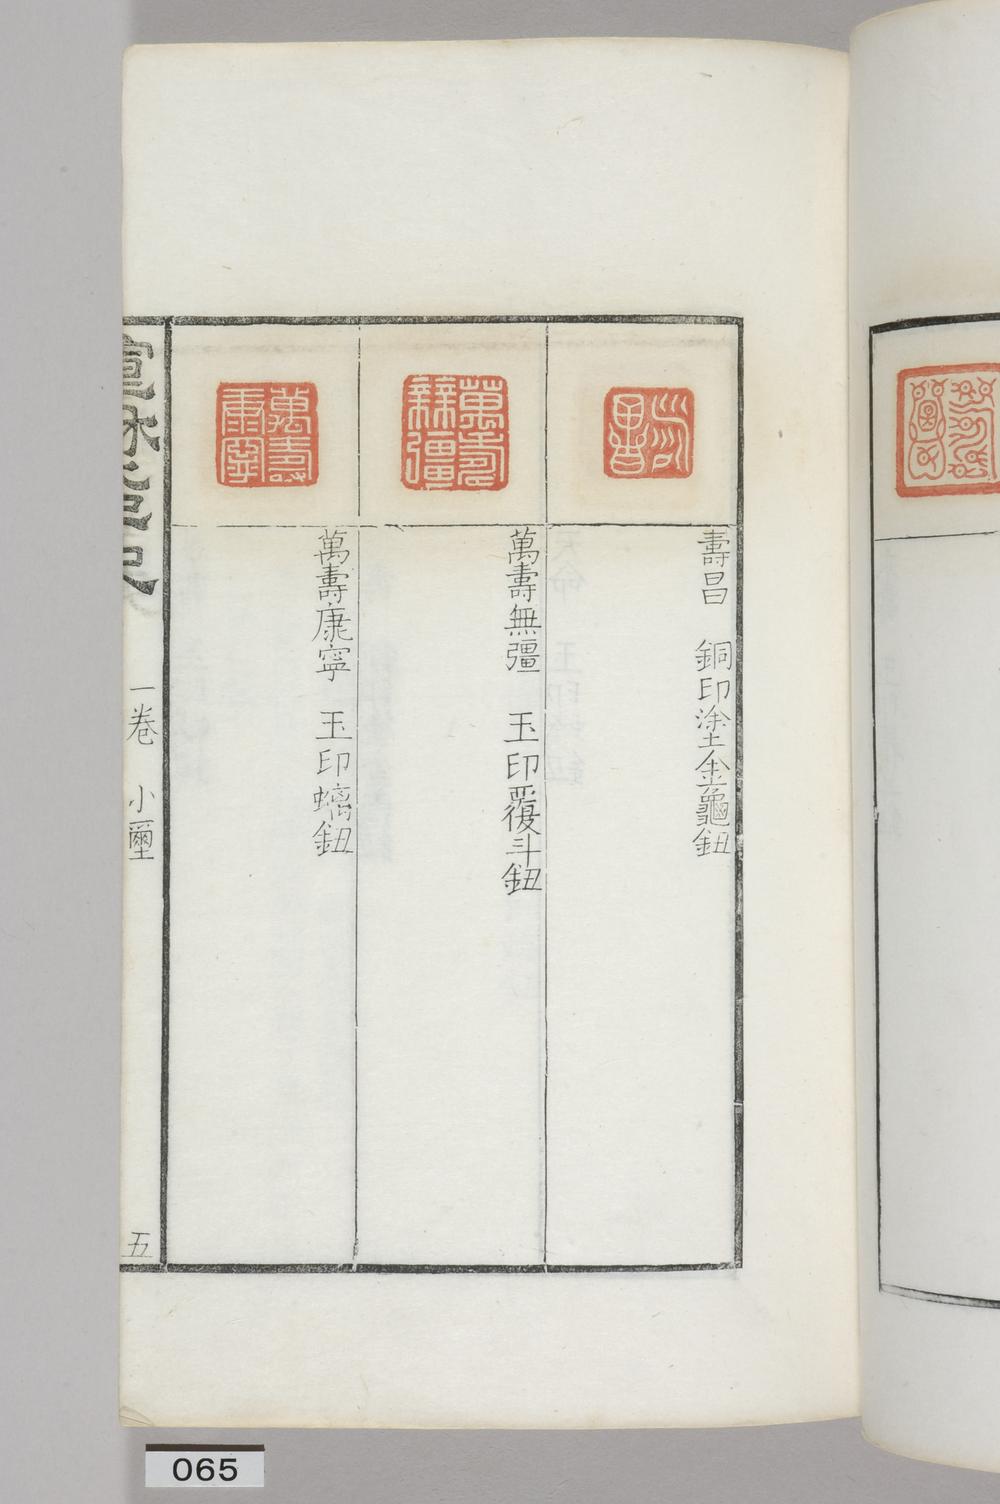 壽昌　銅印塗金龜鈕
萬壽無彊　玉印覆斗鈕
萬壽康寧　玉印螭鈕
一卷　小璽
五
065